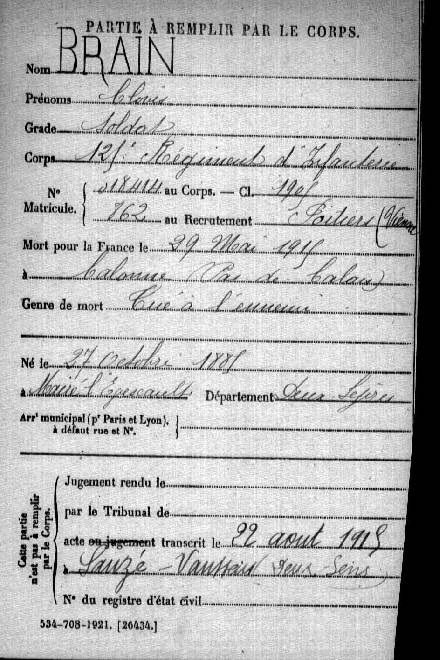 PARTIE À REMPLIR PAR LE CORPS.
Nom BRAIN
Prénoms Clovis
Grade Soldat
Corps 125e Régiment d'Infanterie
N° Matricule. 018414 au Corps. — Cl. 1905
762 au Recrutement Poitiers (Vienne
Mort pour la France le 29 Mai 1915
à Calonne (Pas de Calais)
Genre de mort Tué à l'ennemi
Né le 27 Octobre 1885
à Mairé l'Evescault Département Deux Sèvres
Arrt municipal (pr Paris et Lyon), à défaut rue et N°.
Cette partie n'est pas à remplir par le Corps.
Jugement rendu le
par le Tribunal de
acte ou jugement transcrit le 22 aout 1915
à Sauzé-Vaussais Deux Sèvres
N° du registre d'état civil
534-708-1921. [26434.]